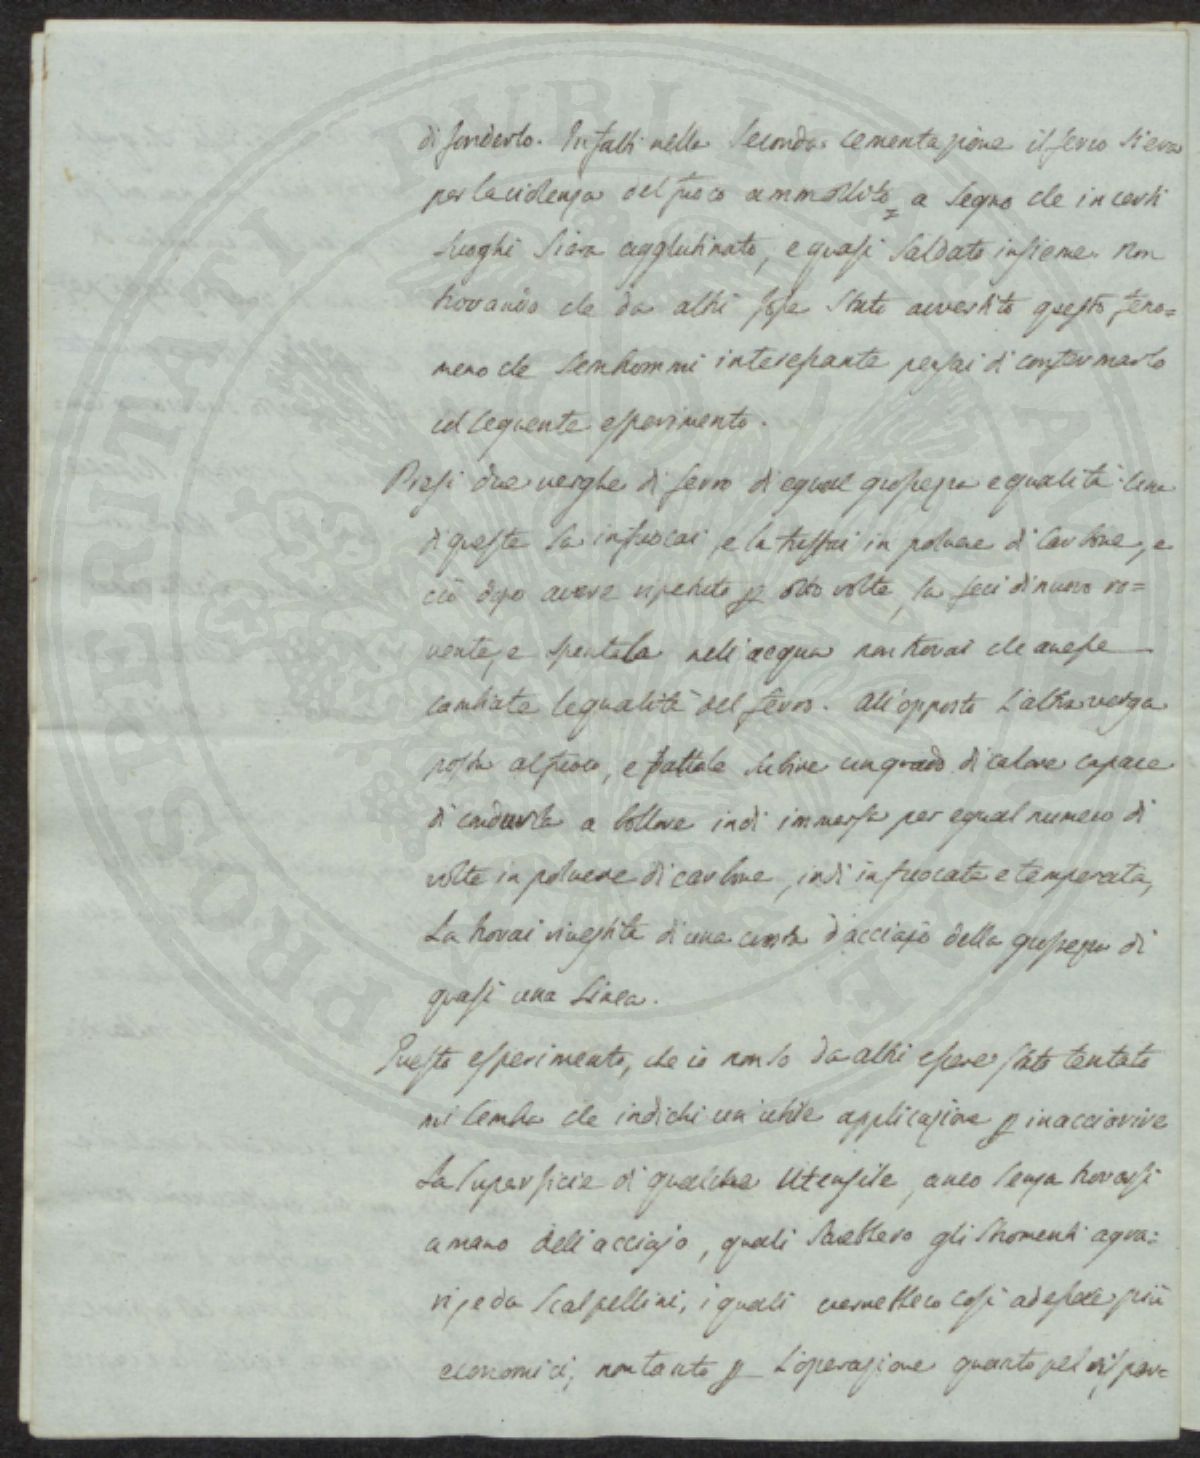 di fonderlo. Infatti nella seconda cementazione il ferro si era
per la violenza del fuoco ammollito a segno che in certi
luoghi si era agglutinato, e quasi saldato insieme. Non
trovando che da altri fosse stato avvertito questo feno=
meno che sembrommi interessante pensai di confermarlo
col seguente esperimento.
Presi due verghe di ferro di egual grossezza e qualità. Una
di queste la infuocai, e la tuffai in polvere di carbone, e
ciò dopo avere ripetuto p otto volte, la feci di nuovo ro=
vente, e spentala nell'acqua non trovai che avesse
cambiate le qualità del ferro. All'opposto l'altra verga
posta al fuoco, e fattale subire un grado di calore capace
di condurla a bollore indi immersa per egual numero di
volte in polvere di carbone, indi infuocata e temperata,
la trovai rivestita di una crosta d'acciajo della grossezza di
quasi una linea.
Questo esperimento, che io non so da altri essere stato tentato
mi sembra che indichi un'utile applicazione p inacciorire
la superficie di qualche utensile, anco senza trovarsi
a mano dell'acciajo, quali sarebbero gli stromenti agra=
rj, e da scalpellini, i quali verrebbero così ad essere più
economici, non tanto p l'operazione quanto pel rispar=
PROSPERITATI PUBLICAE